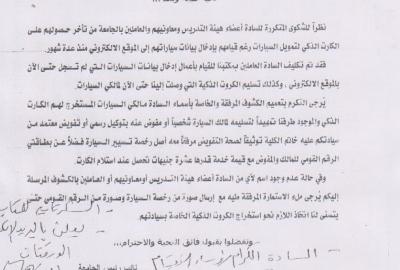 نظراً للشكوى المتكررة للسادة أعضاء هيئة التدريس ومعاونيهم والعاملين بالجامعة من تأخر حصولهم على
الكارت الذكي لتمويل السيارات رغم قيامهم بإدخال بيانات سياراتهم إلى الموقع الالكتروني منذ عدة شهور.
فقد تم تكليف السادة العاملين بمكتبنا للقيام بأعمال إدخال بيانات السيارات التي لم تسجل حتى الآن
بالموقع الالكتروني، وكذلك تسليم الكروت الذكية التي وصلت إلينا حتى الآن لمالكي السيارات.
يُرجى التكرم بتعميم الكشوف المرفقة والخاصة بأسماء السادة مالكي السيارات المستخرج لهم الكارت
الذكي والموجود طرفنا تمهيداً لتسليمه لمالك السيارة شخصياً أو مفوض عنه بتوكيل رسمي أو تفويض معتمد من
سيادتكم عليه خاتم الكلية توثيقاً لصحة التفويض مرفقاً معه أصل رخصة تسيير السيارة فضلاً عن بطاقتي
الرقم القومي للمالك والمفوض مع قيمة خدمة قدرها عشرة جنيهات تحصل عند استلام الكارت.
وفي حالة عدم وجود اسم لأي من السادة أعضاء هيئة التدريس ومعاونيهم أو العاملين بالكشوف المرسلة
إليكم يُرجى ملء الاستمارة المرفقة مع إرسال صورة من رخصة السيارة وصورة من الرقم القومي حتى
يتسنى لنا اتخاذ اللازم نحو استخراج الكروت الذكية الخاصة بسيادتهم.
وتفضلوا بقبول فائق التحية والاحترام...
السادة الكرام
نائب رئيس الجامعة